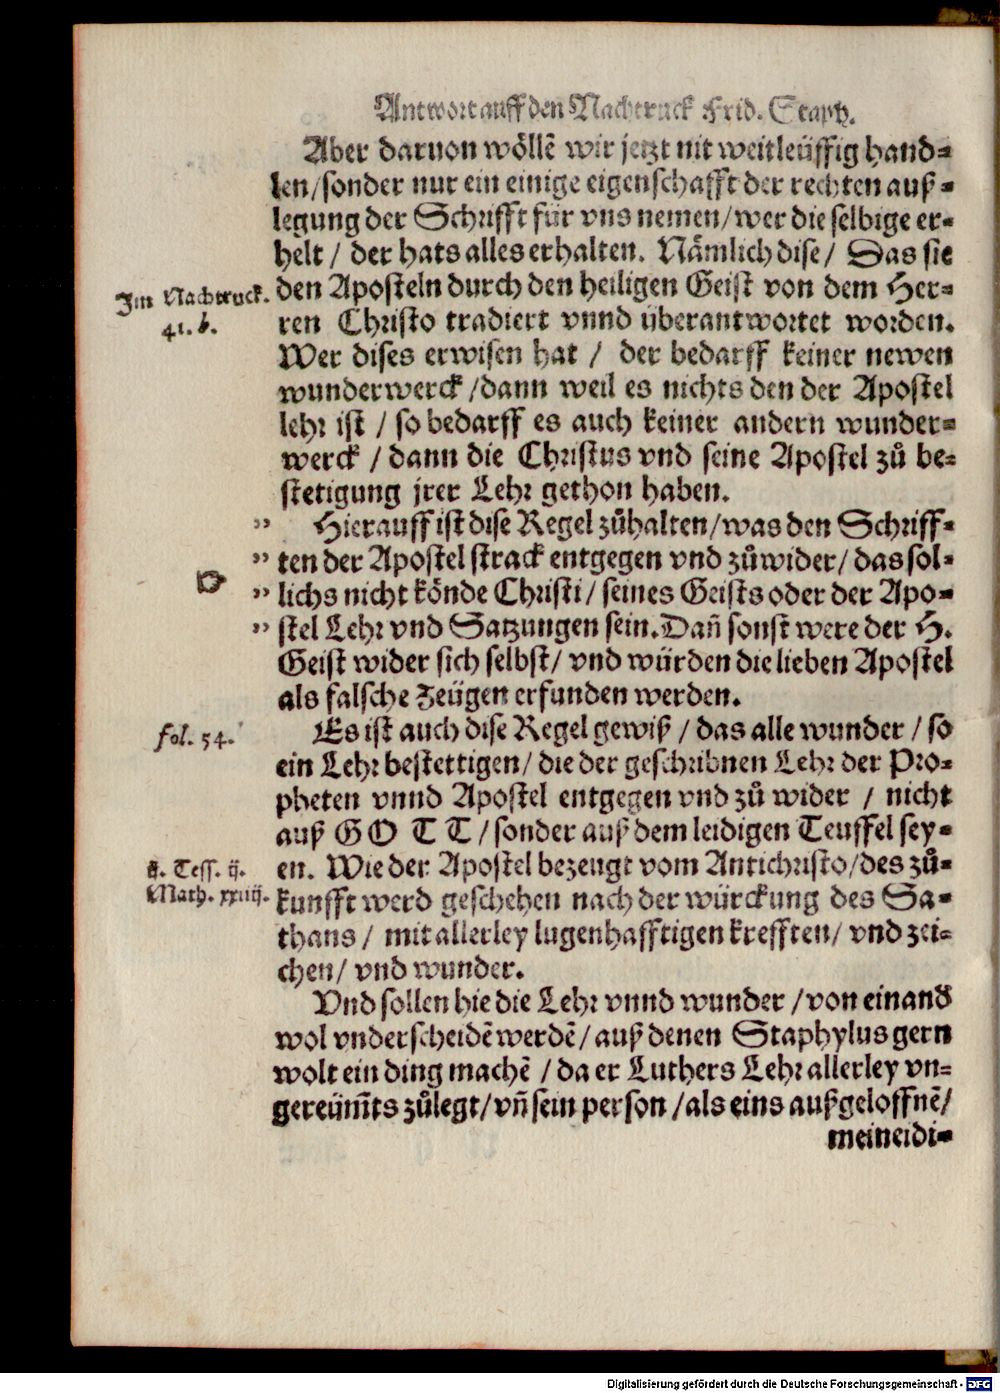 Antwort auff den Nachtruck Frid. Staph.
Aber daruon wöllẽ wir jetzt nit weitleüffig hand⸗
len/sonder nur ein einige eigenschafft der rechten auß⸗
legung der Schrifft für vns nemen/wer die selbige er⸗
helt / der hats alles erhalten. Nämlich dise/ Das sie
Im Nachtruck. den Aposteln durch den heiligen Geist von dem Her⸗
41. b. ren Christo tradiert vnnd überantwortet worden.
Wer dises erwisen hat / der bedarff keiner newen
wunderwerck /dann weil es nichts den der Apostel
lehr ist / so bedarff es auch keiner andern wunder⸗
werck / dann die Christus vnd seine Apostel zů be⸗
stetigung jrer Lehr gethon haben.
" Hierauff ist dise Regel zůhalten/was den Schriff⸗
" ten der Apostel strack entgegen vnd zůwider/ das sol⸗
☞ " lichs nicht könde Christi/ seines Geists oder der Apo⸗
" stel Lehr vnd Satzungen sein. Dañ sonst were der H.
Geist wider sich selbst/ vnd würden die lieben Apostel
als falsche Zeügen erfunden werden.
fol. 54. Es ist auch dise Regel gewiß / das alle wunder / so
ein Lehr bestettigen/ die der geschribnen Lehr der Pro⸗
pheten vnnd Apostel entgegen vnd zů wider / nicht
auß G O T T /sonder auß dem leidigen Teuffel sey⸗
ij. Tess. ij. en. Wie der Apostel bezeugt vom Antichristo/des zů⸗
Math. xxiiij. kunfft werd geschehen nach der würckung des Sa⸗
thans / mit allerley lugenhafftigen krefften/ vnd zei⸗
chen/ vnd wunder.
Vnd sollen hie die Lehr vnnd wunder /von einand̕
wol vnderscheidẽ werdẽ / auß denen Staphylus gern
wolt ein ding machẽ / da er Luthers Lehr allerley vn⸗
gereüm̃ts zůlegt/vñ sein person /als eins außgeloffnẽ/
meineidi⸗
Digitalisierung gefördert durch die Deutsche Forschungsgemeinschaft - DFG